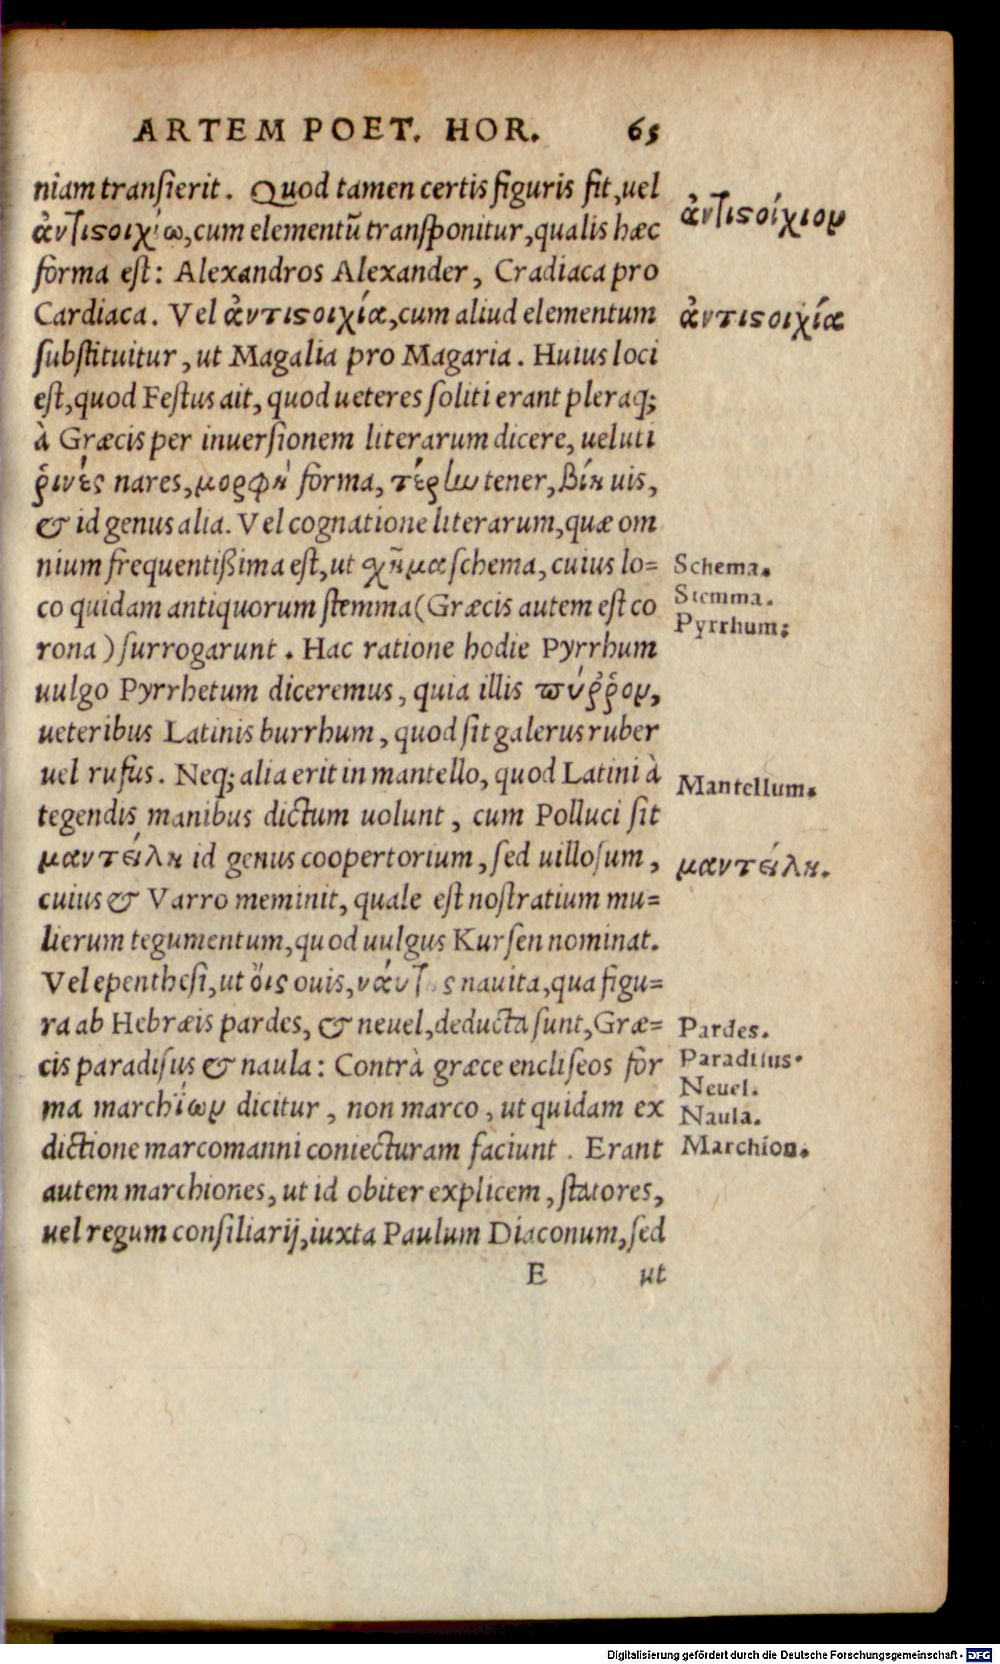 ARTEM POET. HOR. 65
niam transierit. Quod tamen certis figuris fit, uel
ἀντιστοιχίῳ, cum elementũ transponitur, qualis hæc
forma est: Alexandros Alexander, Cradiaca pro
Cardiaca. Vel ἀντιστοιχία, cum aliud elementum
substituitur, ut Magalia pro Magaria. Huius loci
est, quod Festus ait, quod ueteres soliti erant pleraq;
à Græcis per inuersionem literarum dicere, ueluti
ῥινὲς nares, μορφὴ forma, τέρἰω tener, βίη uis,
& id genus alia. Vel cognatione literarum, quæ om
nium frequentißima est, ut χῆμα schema, cuius lo=
co quidam antiquorum stemma (Græcis autem est co
rona) surrogarunt. Hac ratione hodie Pyrrhum
uulgo Pyrrhetum diceremus, quia illis πύῤῥον,
ueteribus Latinis burrhum, quod sit galerus ruber
uel rufus. Neq; alia erit in mantello, quod Latini à
tegendis manibus dictum uolunt, cum Polluci sit
μαντείλη id genus coopertorium, sed uillosum,
cuius & Varro meminit, quale est nostratium mu=
lierum tegumentum, quod uulgus Kursen nominat.
Vel epenthesi, ut ὄις ouis, nauita, qua figu=
ra ab Hebræis pardes, & neuel, deducta sunt, Græ=
cis paradisus & naula: Contrà græce encliseos for
ma marchίων dicitur, non marco, ut quidam ex
dictione marcomanni coniecturam faciunt. Erant
autem marchiones, ut id obiter explicem, statores,
uel regum consiliarij, iuxta Paulum Diaconum, sed
E ut
ἀντιστοίχιον
ἀντιστοιχία
Schema.
Stemma.
Pyrrhum;
Mantellum.
μαντείλη.
Pardes.
Paradisus.
Neuel.
Naula.
Marchion.
Digitalisierung gefördert durch die Deutsche Forschungsgemeinschaft - DFG